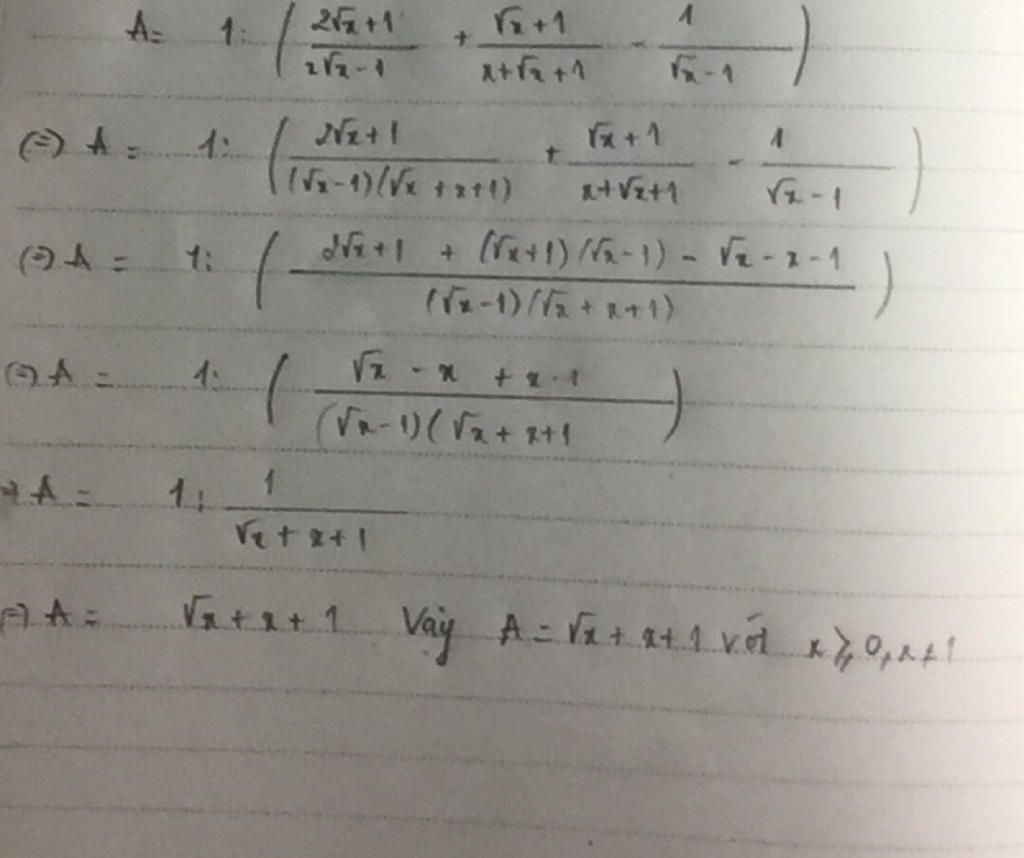 A = 1 : ( (2√x + 1)/(x√x - 1) + (√x + 1)/(x + √x + 1) - 1/(√x - 1) )
(=) A = 1 : ( (2√x + 1)/((√x - 1)(√x + x + 1)) + (√x + 1)/(x + √x + 1) - 1/(√x - 1) )
(=) A = 1 : ( (2√x + 1 + (√x + 1)(√x - 1) - √x - x - 1)/((√x - 1)(√x + x + 1)) )
(=) A = 1 : ( (√x - x + x - 1)/((√x - 1)(√x + x + 1) )
=) A = 1 : 1/(√x + x + 1)
=) A = √x + x + 1 Vậy A = √x + x + 1 với x ⩾ 0, x ≠ 1